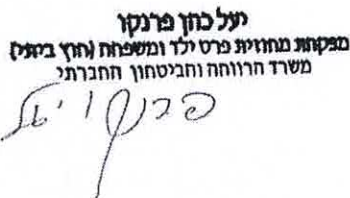 יעל כהן פרנקו
מפקחת מחוזית פרט ילד ומשפחה (חוץ ביתי)
משרד הרווחה והביטחון החברתי
פרנקו יעל